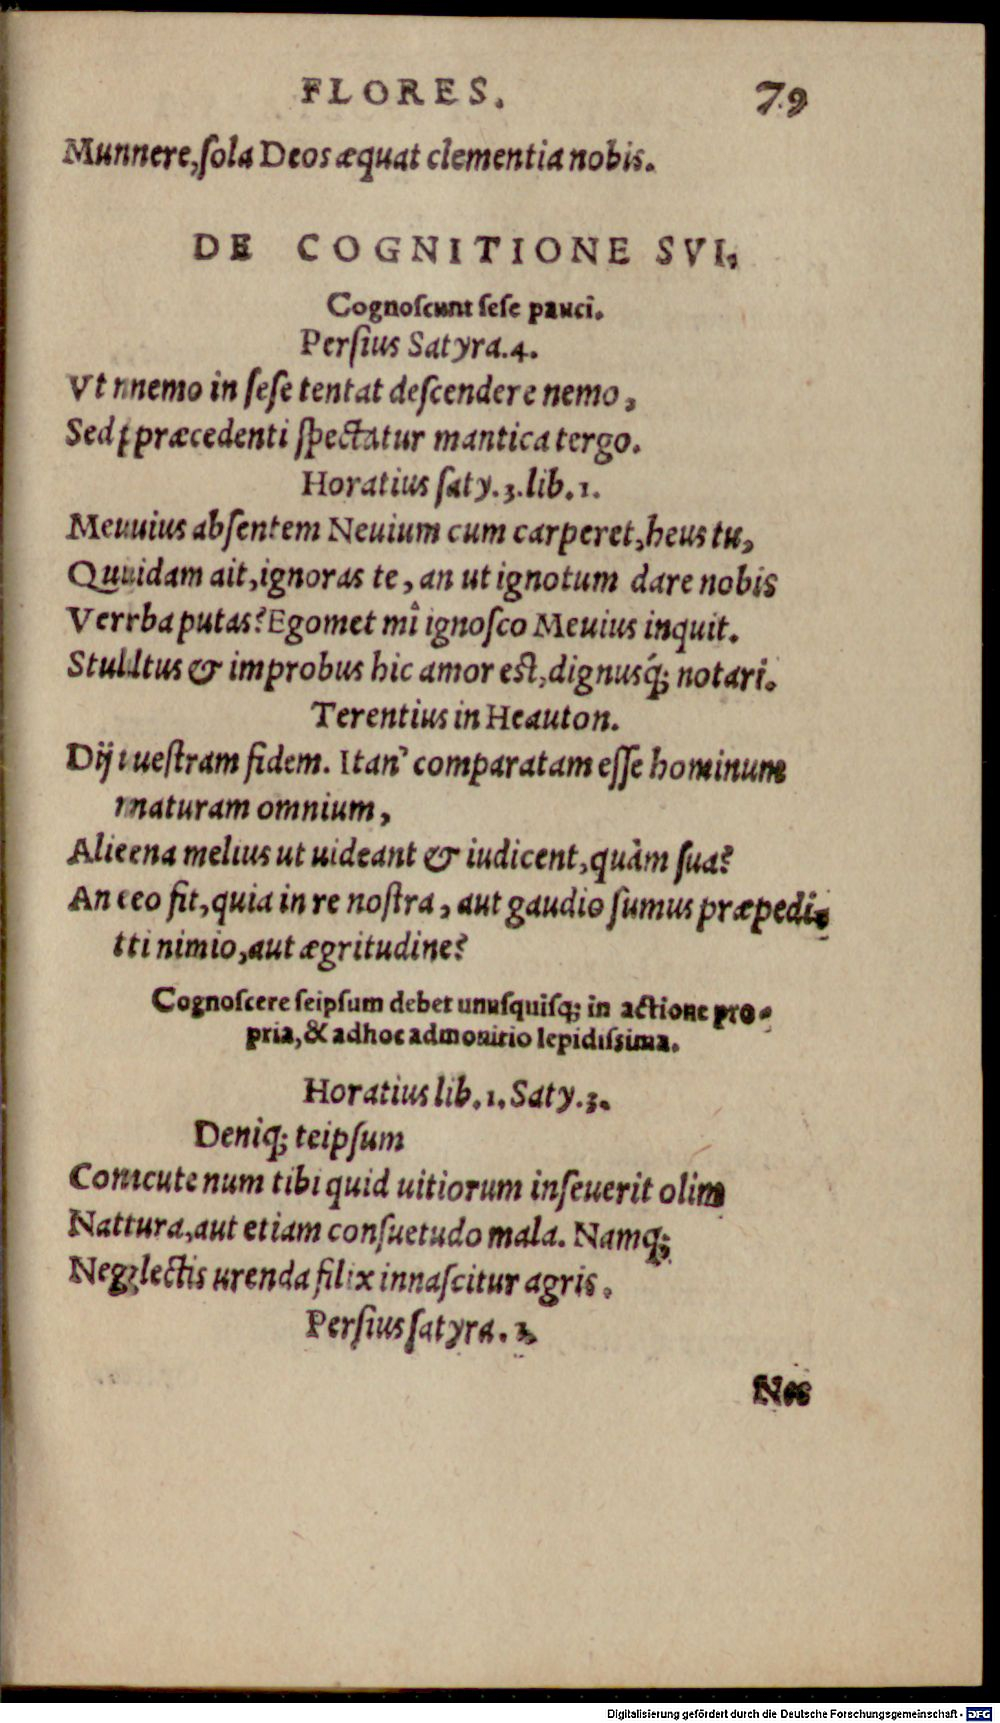 FLORES. 79
Munnere, ſola Deos æquat clementia nobis.
DE COGNITIONE SVI.
Cognoſcunt ſeſe pauci.
Perſius Satyra. 4.
Vt nnemo in ſeſe tentat deſcendere nemo,
Sed præcedenti ſpectatur mantica tergo.
Horatius ſaty. 3. lib. 1.
Meuuius abſentem Neuium cum carperet, heus tu,
Quuidam ait, ignoras te, an ut ignotum dare nobis
Verrba putas? Egomet mî ignoſco Meuius inquit.
Stulltus & improbus hic amor eſt, dignusq́; notari.
Terentius in Heauton.
Dij ueſtram fidem. Itan' comparatam eſſe hominum
nnaturam omnium,
Alieena melius ut uideant & iudicent, quàm ſua?
An eeo fit, quia in re noſtra, aut gaudio ſumus præpedi-
tti nimio, aut ægritudine?
Cognoſcere ſeipſum debet unuſquiſq; in actione pro-
pria, & adhoc admonitio lepidiſſima.
Horatius lib. 1. Saty. 3.
Deniq; teipſum
Concute num tibi quid uitiorum inſeuerit olim
Nattura, aut etiam conſuetudo mala. Namq;
Negglectis urenda filix innaſcitur agris.
Perſius ſatyra. 3.
Nec
Digitalisierung gefördert durch die Deutsche Forschungsgemeinschaft - DFG